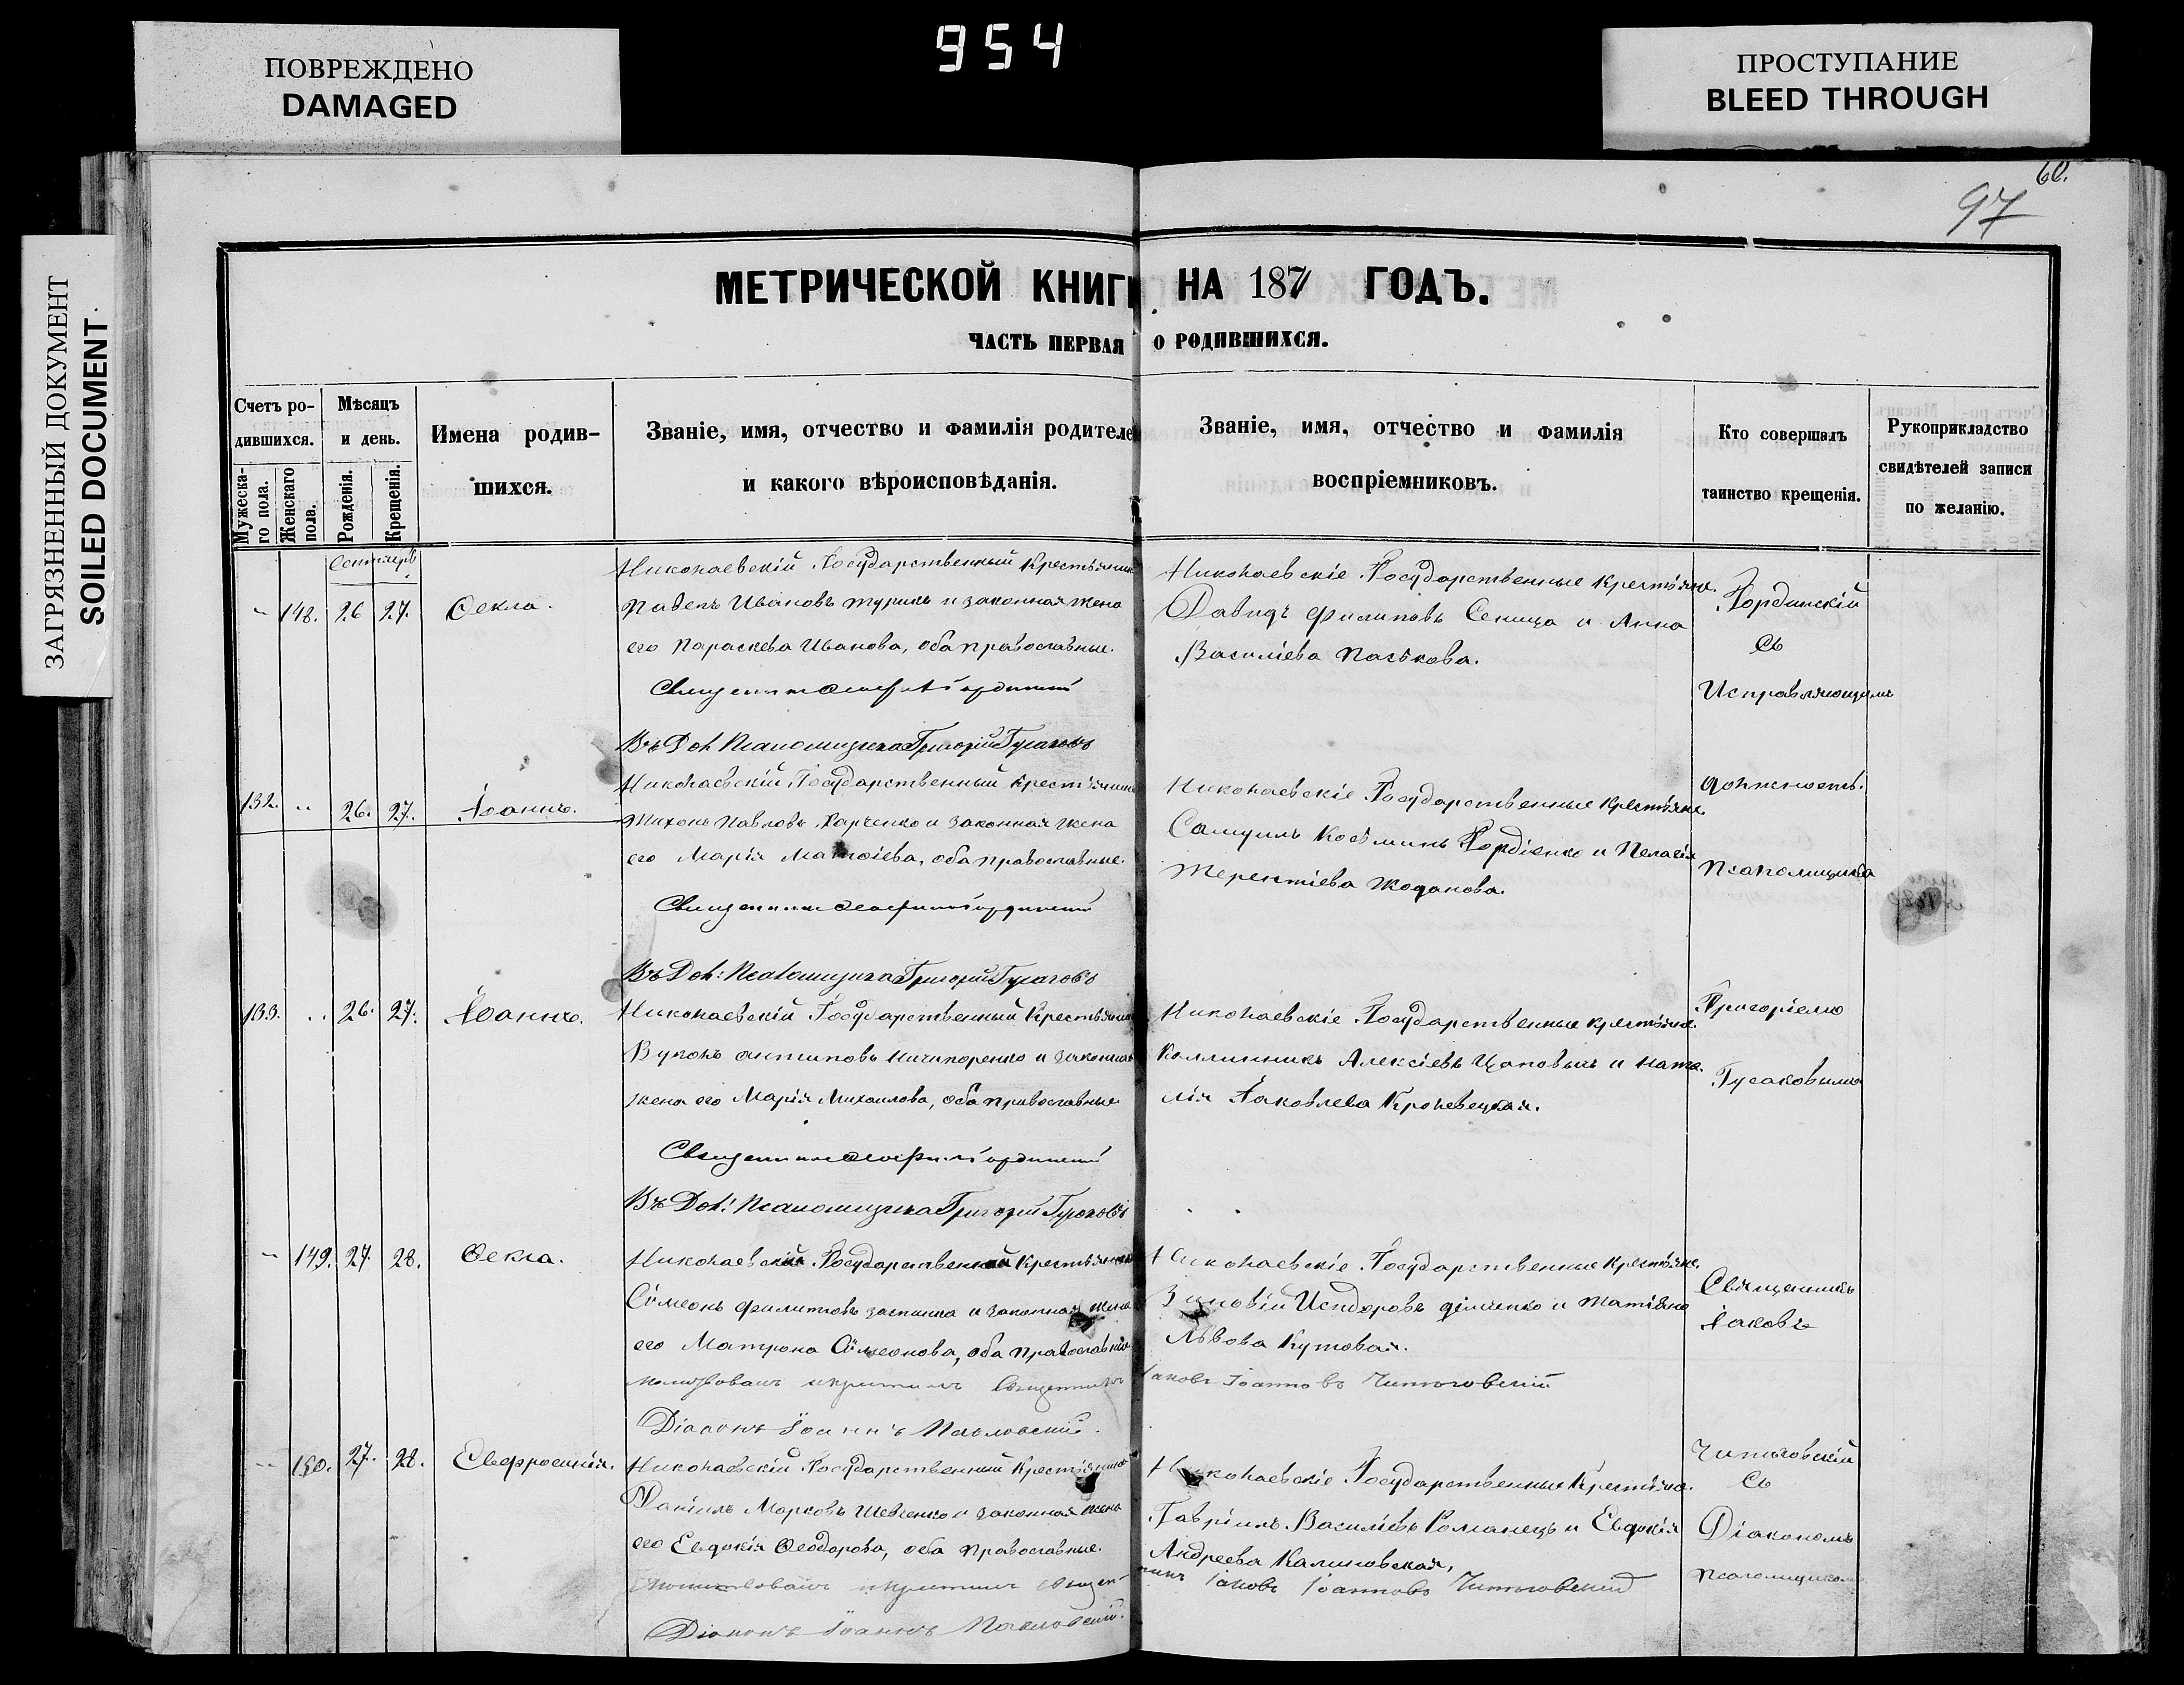 954
ПОВРЕЖДЕНО
DAMAGED
ПРОСТУПАНИЕ
BLEED THROUGH
ЗАГРЯЗНЕННЫЙ ДОКУМЕНТ
SOILED DOCUMENT
60.
97
МЕТРИЧЕСКОЙ КНИГИ НА 1871 ГОДЪ.
ЧАСТЬ ПЕРВАЯ О РОДИВШИХСЯ.
Счетъ ро-
дившихся.
Мужеска-
го пола.
Женскаго
пола.
Мѣсяцъ
и день.
Рожденія.
Крещенія.
Имена родив-
шихся.
Званіе, имя, отчество и фамилія родителе
и какого вѣроисповѣданія.
Званіе, имя, отчество и фамилія
воспріемниковъ.
Кто совершалъ
таинство крещенія.
Рукоприкладство
свидѣтелей записи
по желанію.
148. 26 27. Ѳекла.
Николаевскій Государственный Крестьянинъ
Ивановъ и законная жена
его Параскева Иванова, оба православные.
Николаевскіе Государственные крестьяне
Давидъ Филиповъ Сеница и Анна
Василіева Паськова.
Гординскій
Съ
Исправляющимъ
Въ Дол. Псаломщика Григорій Гусаковъ
132. 26. 27. Іоаннъ.
Николаевскій Государственный крестьянинъ
Тихонъ Павловъ Харченко и законная жена
его Марія Матѳіева, оба православные.
Николаевскіе Государственные крестьяне
Самуилъ Косьминъ Гордіенко и Пелагія
Терентіева Жоданова.
должность.
Псаломщика
Въ Дол: Псаломщика Григорій Гусаковъ
133. 26. 27. Іоаннъ.
Николаевскій Государственный Крестьянинъ
Вуколъ Антиповъ Ничипоренко и законная
жена его Марія Михаилова, оба православные
Николаевскіе Государственные крестьяне.
Каллинникъ Алексіевъ Цаповичъ и Ната-
лія Іаковлева Кролевецкая.
Григоріемъ
Гусаковымъ
Въ Дол: Псаломщика Григорій Гусаковъ
149. 27 28. Ѳекла.
Николаевскій Государственный Крестьянинъ
Сѵмеонъ Филиповъ и законная жена
его Матрона Сѵмеонова, оба православные
Николаевскіе Государственные крестьяне.
Зиновій Исидоровъ и Татіана
Львова Кутовая.
Священникъ
Іаковъ
Молитвовалъ и крестилъ Священникъ Іаковъ Іоанновъ
Діаконъ Іоаннъ Павловскій.
150. 27. 28. Евфросинія.
Николаевскій Государственный Крестьянинъ
Даніилъ Марковъ Шевченко и законная жена
его Евдокія Ѳеодорова, оба православные.
Николаевскіе Государственные Крестьяне.
Гавріилъ Василіевъ Романецъ и Евдокія
Андреева Калиновская.
Съ
Діакономъ
Діаконъ Іоаннъ Павловскій.